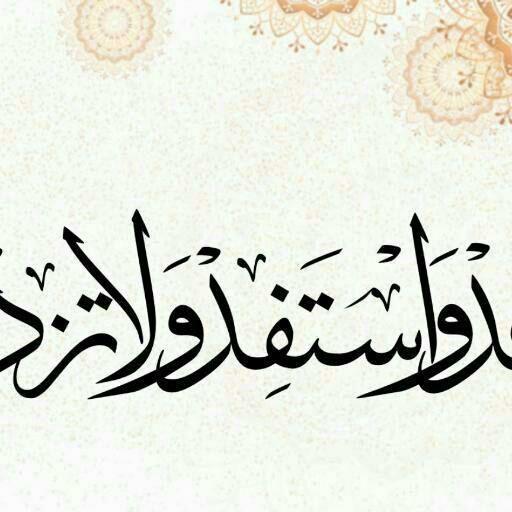 ـدْ وَاسْتَفِدْ وَلا تزد